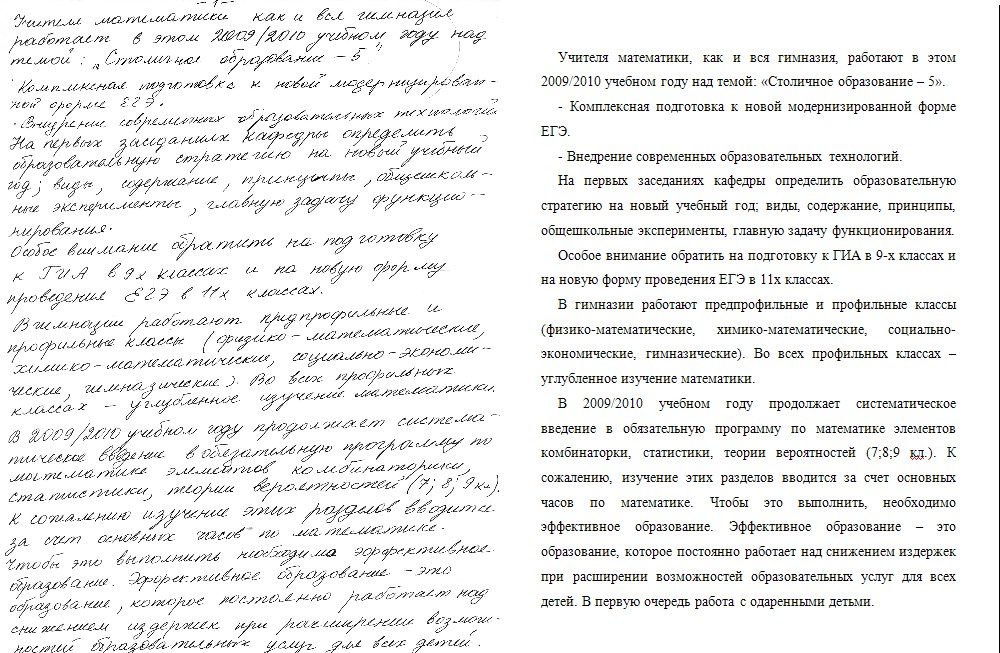 -1-
Учителя математики как и вся гимназия
работает в этом 2009/2010 учебном году над
темой: „Столичное образование – 5".
· Комплексная подготовка к новой модернизирован-
ной форме ЕГЭ.
· Внедрение современных образовательных технологий
На первых заседаниях кафедры определить
образовательную стратегию на новый учебный
год; виды, содержание, принципы, общешколь-
ные эксперименты, главную задачу функцио-
нирования.
Особое внимание обратить на подготовку
к ГИА в 9х классах и на новую форму
проведения ЕГЭ в 11х классах.
В гимназии работают предпрофильные и
профильные классы (физико-математические,
химико-математические, социально-экономи-
ческие, гимназические). Во всех профильных
классах – углубленное изучение математики.
В 2009/2010 учебном году продолжает система-
тическое введение в обязательную программу по
математике элементов комбинаторики,
статистики, теории вероятностей (7; 8; 9 кл.).
К сожалению изучение этих разделов вводится
за счет основных часов по математике.
Чтобы это выполнить необходима эффективное
образование. Эффективное образование – это
образование, которое постоянно работает над
снижением издержек при расширении возмож-
ностей образовательных услуг для всех детей.
Учителя математики, как и вся гимназия, работают в этом
2009/2010 учебном году над темой: «Столичное образование – 5».
- Комплексная подготовка к новой модернизированной форме
ЕГЭ.
- Внедрение современных образовательных технологий.
На первых заседаниях кафедры определить образовательную
стратегию на новый учебный год; виды, содержание, принципы,
общешкольные эксперименты, главную задачу функционирования.
Особое внимание обратить на подготовку к ГИА в 9-х классах и
на новую форму проведения ЕГЭ в 11х классах.
В гимназии работают предпрофильные и профильные классы
(физико-математические, химико-математические, социально-
экономические, гимназические). Во всех профильных классах –
углубленное изучение математики.
В 2009/2010 учебном году продолжает систематическое
введение в обязательную программу по математике элементов
комбинаторки, статистики, теории вероятностей (7;8;9 кл.). К
сожалению, изучение этих разделов вводится за счет основных
часов по математике. Чтобы это выполнить, необходимо
эффективное образование. Эффективное образование – это
образование, которое постоянно работает над снижением издержек
при расширении возможностей образовательных услуг для всех
детей. В первую очередь работа с одаренными детьми.